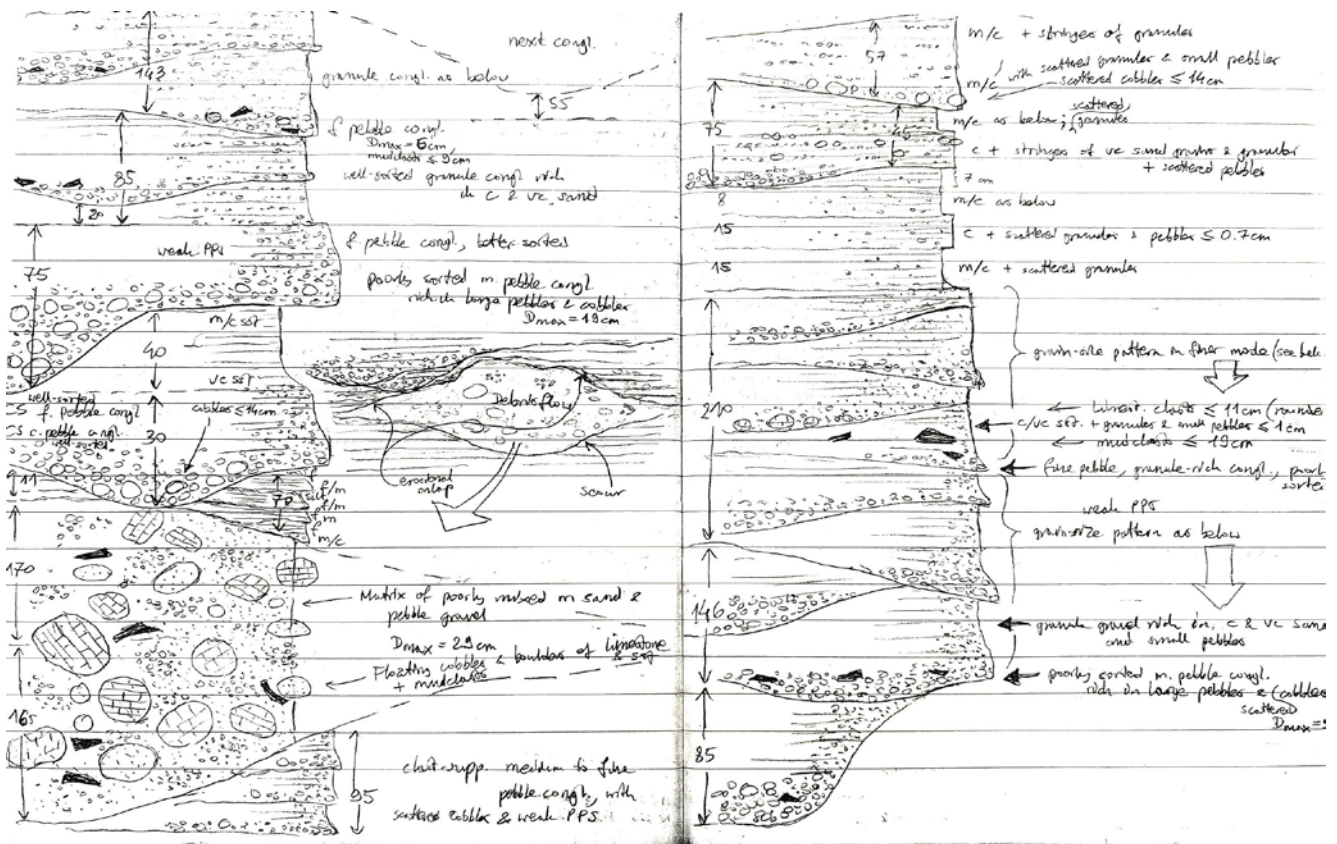 next congl.
143
granule congl. as below
55
f pebble congl.
Dmax = 6cm,
mudclasts ≤ 9cm
85
well-sorted granule congl rich
in c & vc sand
20
weak PPS
f. pebble congl., better sorted
75
poorly sorted m. pebble congl
rich in large pebbles & cobbles
Dmax = 19cm
m/c sst
40
vc sst
well-sorted
CS f. pebble congl
cobbles ≤ 14cm
CS c. pebble congl
well-sorted
30
Debris flow
11
70
f/m
silt
f/m
f
m
m/c
erosional
onlap
scour
170
Matrix of poorly mixed m sand &
pebble gravel
Dmax = 29cm
Floating cobbles & boulders of limestone
& sst
+ mudclasts
165
95
clast-supp. medium to fine
pebble congl, with
scattered cobbles & weak PPS
m/c + stringers of granules
57
m/c with scattered granules & small pebbles
scattered cobbles ≤ 14cm
75
m/c as below; scattered
granules
45
c + stringers of vc sand grains & granules
+ scattered pebbles
7 cm
8
m/c as below
15
c + scattered granules & pebbles ≤ 0.7cm
15
m/c + scattered granules
grain-size pattern in finer mode (see bel
210
Limest. clasts ≤ 11cm (rounde
c/vc sst. + granules & small pebbles ≤ 1cm
mudclasts ≤ 19cm
fine pebble, granule-rich congl., poorl
sorte
weak PPS
grain-size pattern as below
146
granule gravel rich in c & vc san
and small pebbles
poorly sorted m. pebble congl.
rich in large pebbles & (cobbles
scattered
Dmax =
85